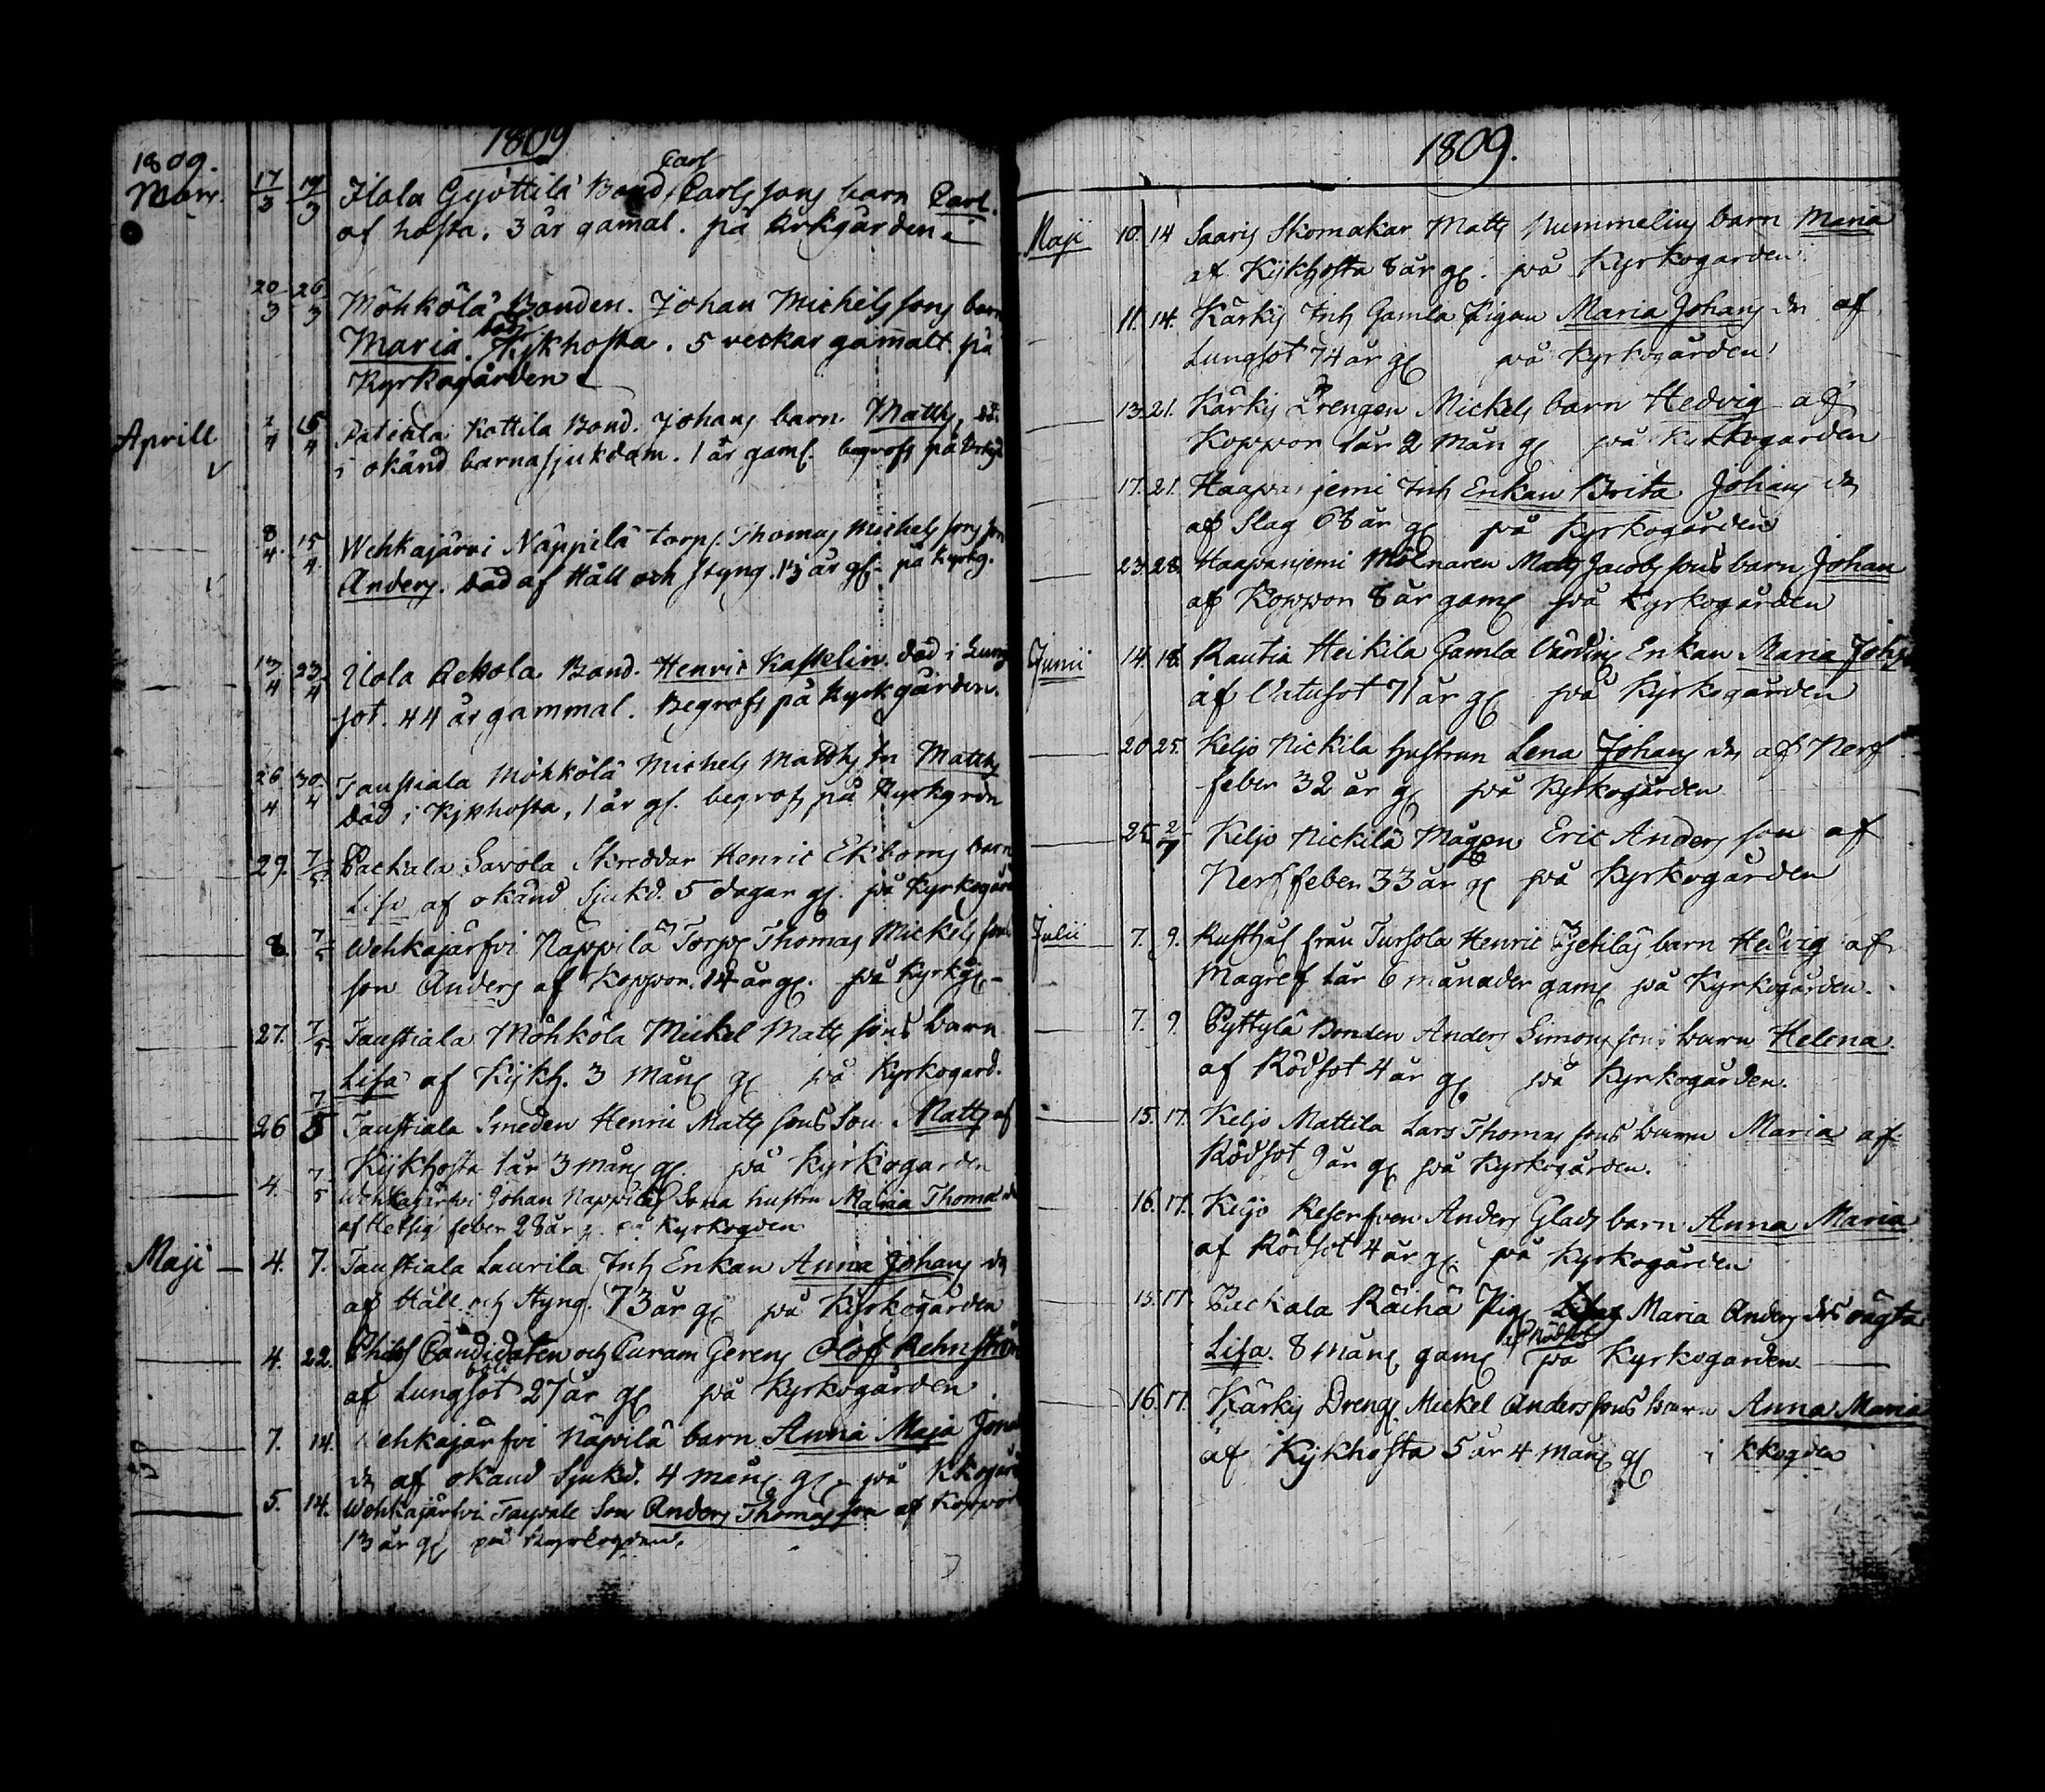 1809
1809.
Mars. 17/3 19/3 Ilola Gyöttilä Bond. Carl Carlssons barn Carl.
af hosta. 3 år gamal. på Kirkgården
20/3 26/3 Möhkölä Bonden. Johan Michelssons barn
Maria. död Kikhosta. 5 veckar gamalt på
Kyrkogården
Aprill 15/4 Kottila Bond. Johans barn Matths, död
i okänd barnasjukdom. 1 år gaml. begrofs på
8/4 15/4 Wehkajärvi Näppilä torp. Thomas Michelssons son
Anders. Död af Håll och styng. 13 år gl. på Kyrkg.
13/4 23/4 Ilola Rekola Bond. Henric Kasselin. död i Lung
sot. 44 år gammal. Begrofs på Kyrkgården.
26/4 30/4 Taustiala Möhkölä Michels Matths sn Matths
Död i Kykhosta, 1 år gl. begrofs på Kyrkgrdn
29. 7/5 Packala Savola Skreddar Henric Ekboms barn
Lisa af okänd Sjukd. 5 dagar gl. på Kyrkogård
8. 7/5 Wehkajärfvi Näppilä Torp Thomas Mickels sons
son Anders af Koppor. 14 år gl. på Kyrkg
27. 7/5 Taustiala Möhköla Mickel Matts sons barn
Lisa af Kikh. 3 mån gl på Kyrkogård.
26 7/5 Taustiala Smeden Henric Matts sons Son Matts af
Kikhosta 1 år 3 mån gl. på Kyrkogården
4. 7/5 Wehkajärfvi Johan Näppiläs Sona hustru Maria Thomae dr
af Hetsig feber 28 år g. på Kyrkogden
Maji 4. 7. Taustiala Laurila Inh Enkan Anna Johans dr
af Håll och Styng. 73 år gl på Kyrkogården
4. 22. Phil Candidaten och Curam Gerens Olof Rehnström
af Lungsot 27 år gl på Kyrkogården
7. 14. Wehkajärfvi Näpilä barn Anna Maja
dr af okänd Sjukd. 4 mån gl. på Kkogård
5. 14. Wehkajärfvi Taipale Son Anders Thomas son af Koppor
13 år gl på Kyrkogden.
1809.
Maji 10. 14 Saaris Skomakar Matts Nummelins barn Maria
af Kikhosta 8 år gl. på Kyrkogården
11. 14. Kärkis Inh Gamla Pigan Maria Johans dr af
Lungsot 74 år gl på Kyrkogården
13. 21. Kärkis Drengen Mickels barn Hedvig af
Koppor 1 år 2 mån gl på Kyrkogården
17. 21. Haapaniemi Inh Enkan Brita Johans dr
af Slag 68 år gl på Kyrkogården
23. 28. Haapaniemi Mölnaren Matts Jacobs sons barn Johan
af Koppor 8 år gaml på Kyrkogården
Junii 14. 18. Rautia Heikila Gamla Enkan Maria Johs
af Vatusot 71 år gl på Kyrkogården
20. 25. Keljo Nickila hustrun Lena Johans dr af Nerf
feber 32 år gl på Kyrkogården
25. 2/7 Keljo Nickilä Mågen Eric Anders son af
Nerf feber 33 år gl på Kyrkogården
Julii 7. 9. Rusthål från Tursola Henric barn Hedvig af
Magref 1 år 6 månader gaml på Kyrkogården.
7. 9. Pyttylä Bonden Anders Simons sons barn Helena
af Rödsot 4 år gl på Kyrkogården.
15. 17. Keljo Mattila Lars Thomas sons barn Maria af
Rödsot 9 år gl på Kyrkogården.
16. 17. Keljo Reserfven Anders Glads barn Anna Maria
af Rödsot 4 år gl på Kyrkogården
15. 17 Packala Räihä Pig Maria Anders drs oägta
Lisa. 8 mån gaml af Rödsot på Kyrkogården
16. 17. Kärkis Dreng Mickel Anders sons barn Anna Maria
af Kykhosta 5 år 4 mån gl i Kkogden